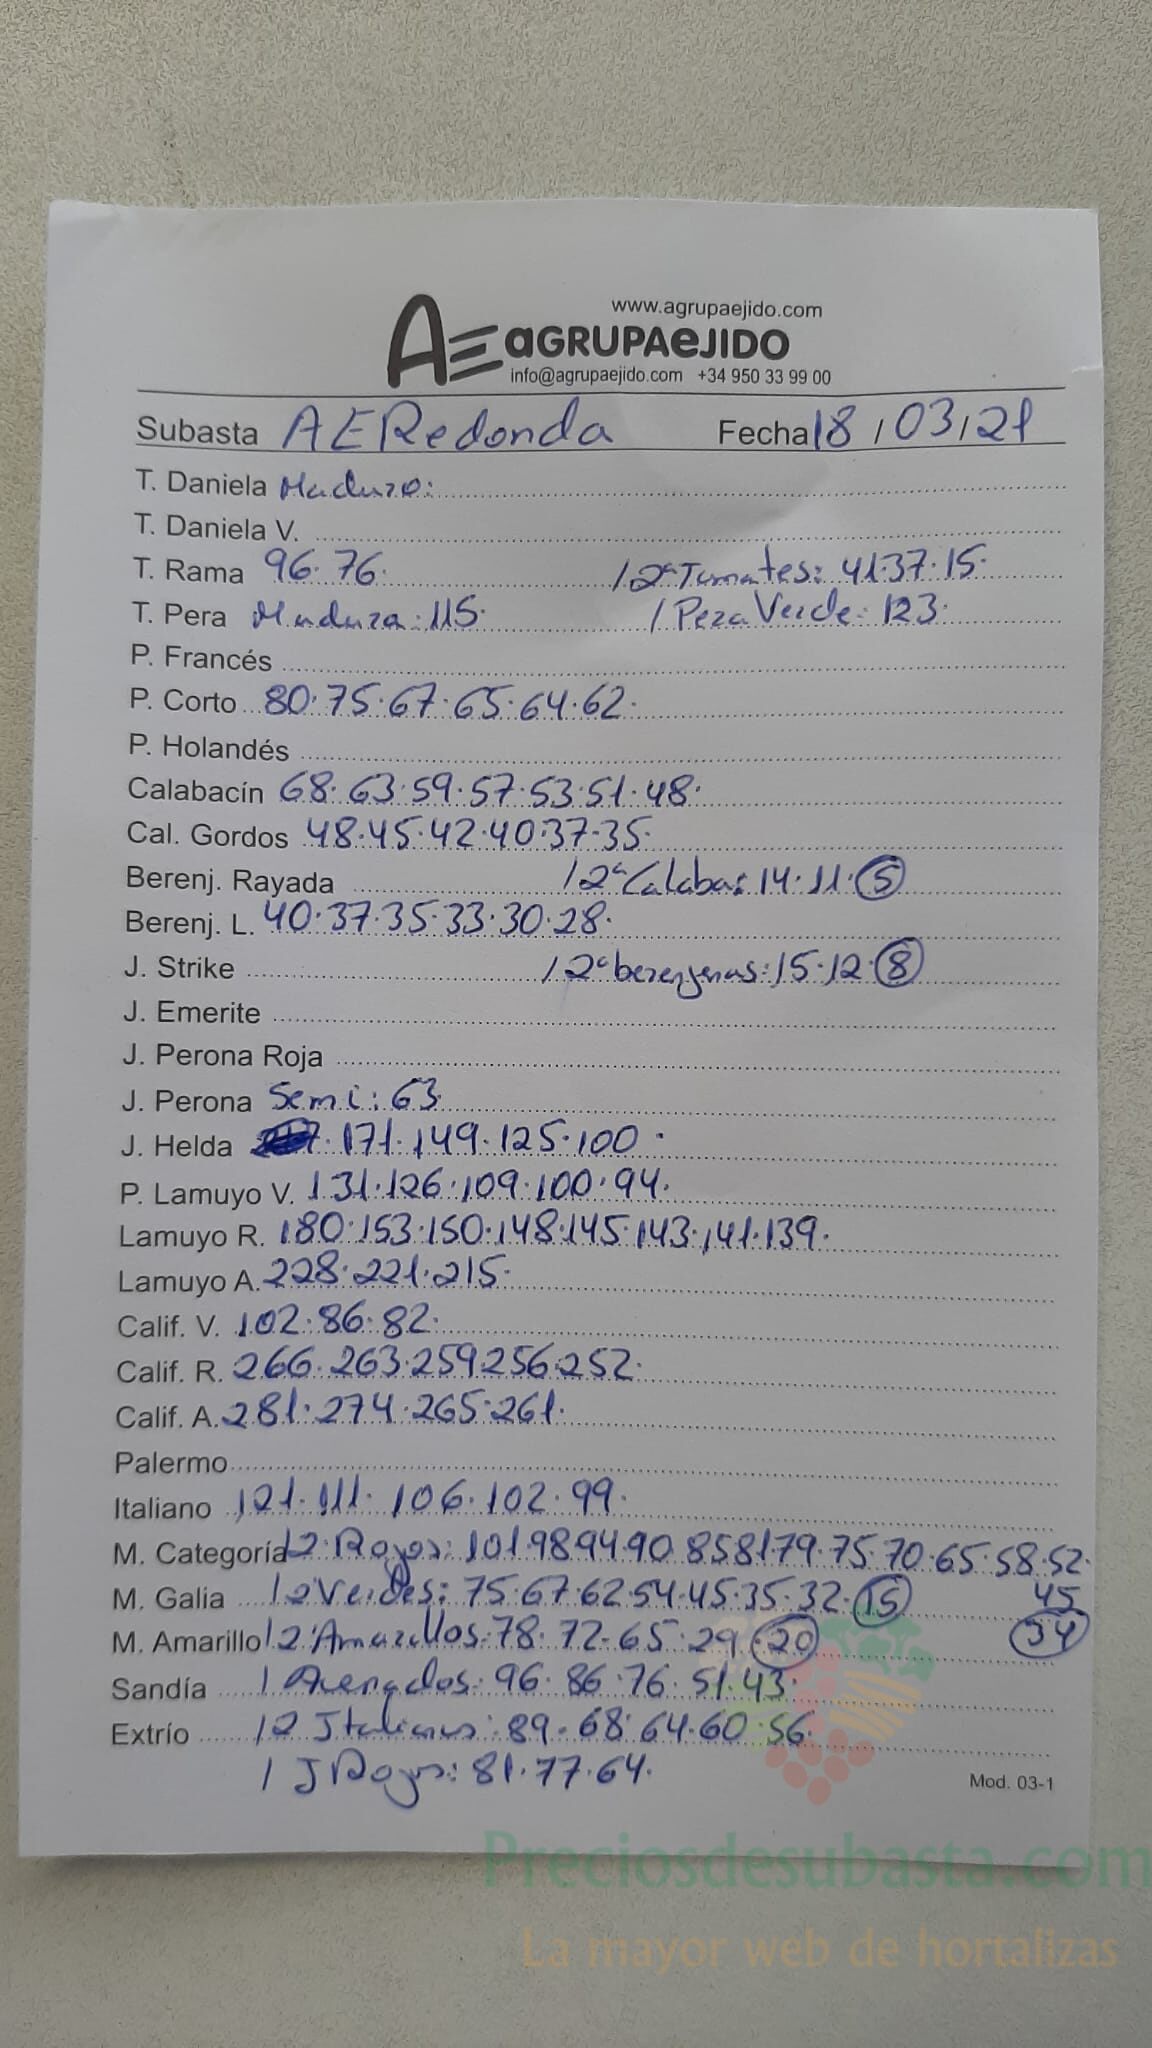 www.agrupaejido.com
AE aGRUPAeJIDO
info@agrupaejido.com +34 950 33 99 00
Subasta AE Redonda Fecha 18/03/21
T. Daniela Maduro:
T. Daniela V.
T. Rama 96.76. / 2ª Tomates: 41.37.15.
T. Pera Madura: 115. / Pera Verde: 123.
P. Francés
P. Corto 80.75.67.65.64.62.
P. Holandés
Calabacín 68.63.59.57.53.51.48.
Cal. Gordos 48.45.42.40.37.35.
Berenj. Rayada / 2ª Calaba: 14.11.5
Berenj. L. 40.37.35.33.30.28.
J. Strike / 2ª berenjenas: 15.12.8
J. Emerite
J. Perona Roja
J. Perona Semi: 63
J. Helda 171.149.125.100.
P. Lamuyo V. 131.126.109.100.94.
Lamuyo R. 180.153.150.148.145.143.141.139.
Lamuyo A. 228.221.215.
Calif. V. 102.86.82.
Calif. R. 266.263.259.256.252.
Calif. A. 281.274.265.261.
Palermo
Italiano 121.111.106.102.99.
M. Categoría / 2ª Rojos: 101.98.94.90.85.81.79.75.70.65.58.52.
M. Galia / 2ª Verdes: 75.67.62.54.45.35.32.15 45
M. Amarillo / 2ª Amarillos: 78.72.65.29.20 34
Sandía / Asengados: 96.86.76.51.43.
Extrío / 2 Italianos: 89.68.64.60.56.
/ J Rojos: 81.77.64.
Mod. 03-1
Preciosdesubasta.com
La mayor web de hortalizas